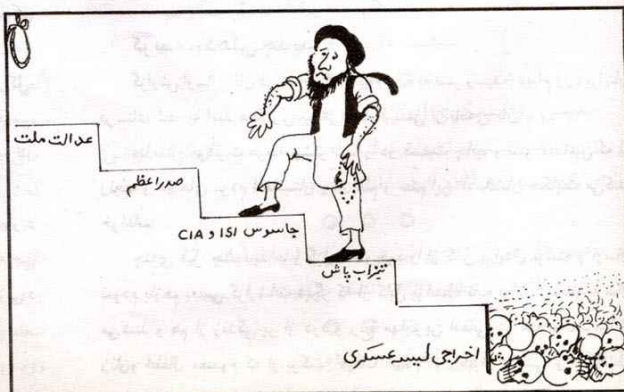 عدالت ملت
صدراعظم
جاسوس ISI و CIA
تیزاب پاش
اخراجی لیسه عسکری